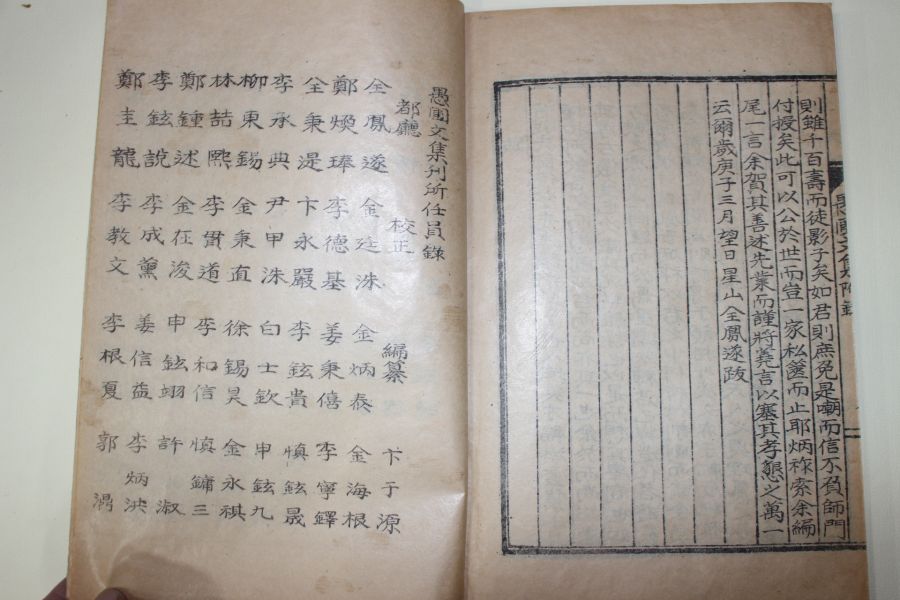 則雖千百壽而徒影子矣如君則庶免是嘲而信不負師門
付授矣此可以公於世而豈一家私篋而止耶炳祿索余編
尾一言余賀其善述先業而謹將蕘言以塞其孝懇之萬一
云爾歲庚子三月望日星山全鳳遂跋
愚園文集附錄
愚園文集刊所任員錄
都廳 校正 編纂
全鳳遂 金廷洙 金炳泰 卞于源
鄭煥琫 李德基 姜秉僖 金海根
全秉湜 卞永嚴 李鉉貴 李寧鐸
李承典 尹甲洙 白士欽 愼鉉晟
柳東錫 金秉直 徐錫昊 申鉉九
林喆熙 李貫道 李和信 金永祺
鄭鍾述 金在浚 申鉉翊 愼鏞三
李鉉說 李成薰 姜信益 許淑
鄭圭龍 李教文 李根夏 李炳泱
郭